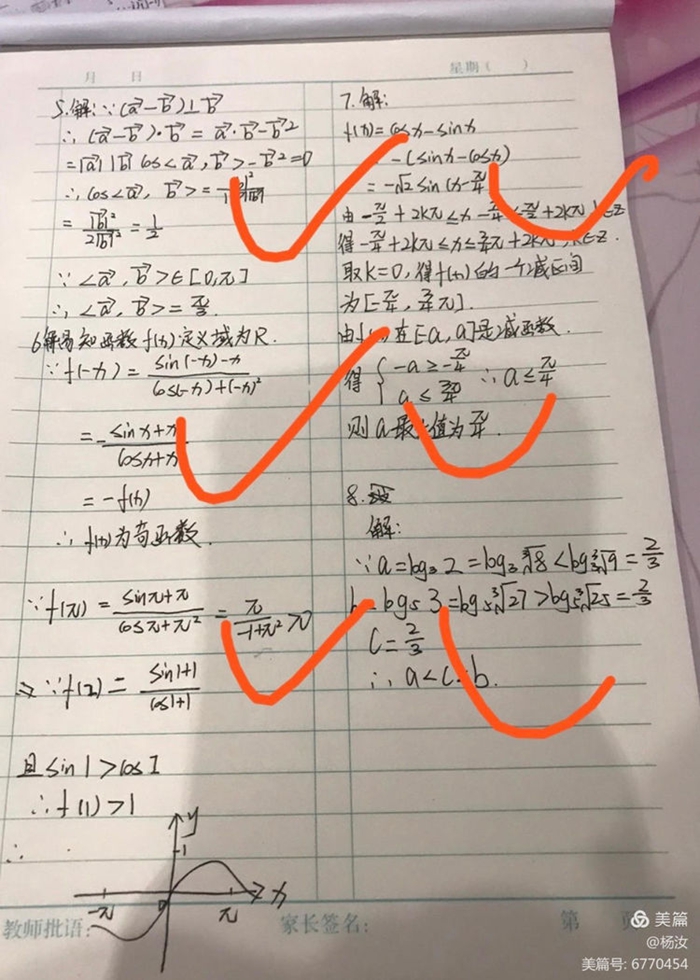 月 日
星期（ ）
5.解:∵(a⃗-b⃗)⊥b⃗
∴(a⃗-b⃗)·b⃗=a⃗·b⃗-b⃗²
=|a⃗||b⃗|cos<a⃗,b⃗>-b⃗²=0
∴cos<a⃗,b⃗>=
=|b⃗|²/2|b⃗|²=1/2
∵<a⃗,b⃗>∈[0,π]
∴<a⃗,b⃗>=π/3
6解易知函数f(x)定义域为R.
∵f(-x)=(sin(-x)-x)/(cos(-x)+(-x)²)
=-(sinx+x)/(cosx+x
=-f(x)
∴f(x)为奇函数.
∵f(π)=(sinπ+π)/(cosπ+π²)=π/(-1+π²)>0
⇒∵f(2)=(sin1+1)/(cos1+1)
且sin1>cos1
∴f(1)>1
∴
y
1
-π 0 π x
7.解:
f(x)=cosx-sinx
=-(sinx-cosx)
=-√2sin(x-π/4)
由-π/2+2kπ≤x-π/4≤π/2+2kπ,k∈Z
得-π/4+2kπ≤x≤3/4π+2kπ,k∈Z.
取k=0,得f(x)的一个减区间
为[-π/4,3/4π].
由f(x)在[-a,a]是减函数.
得{-a≥-π/4 a≤3π/4 ∴a≤π/4
则a最大值为π/4.
8.
解:
∵a=log₃2=log₃∛8<log₃∛9=2/3
b=log₅3=log₅∛27>log₅∛25=2/3
C=2/3
∴a<c<b.
教师批语: 家长签名: 第 页
美篇
@杨汝
美篇号: 6770454